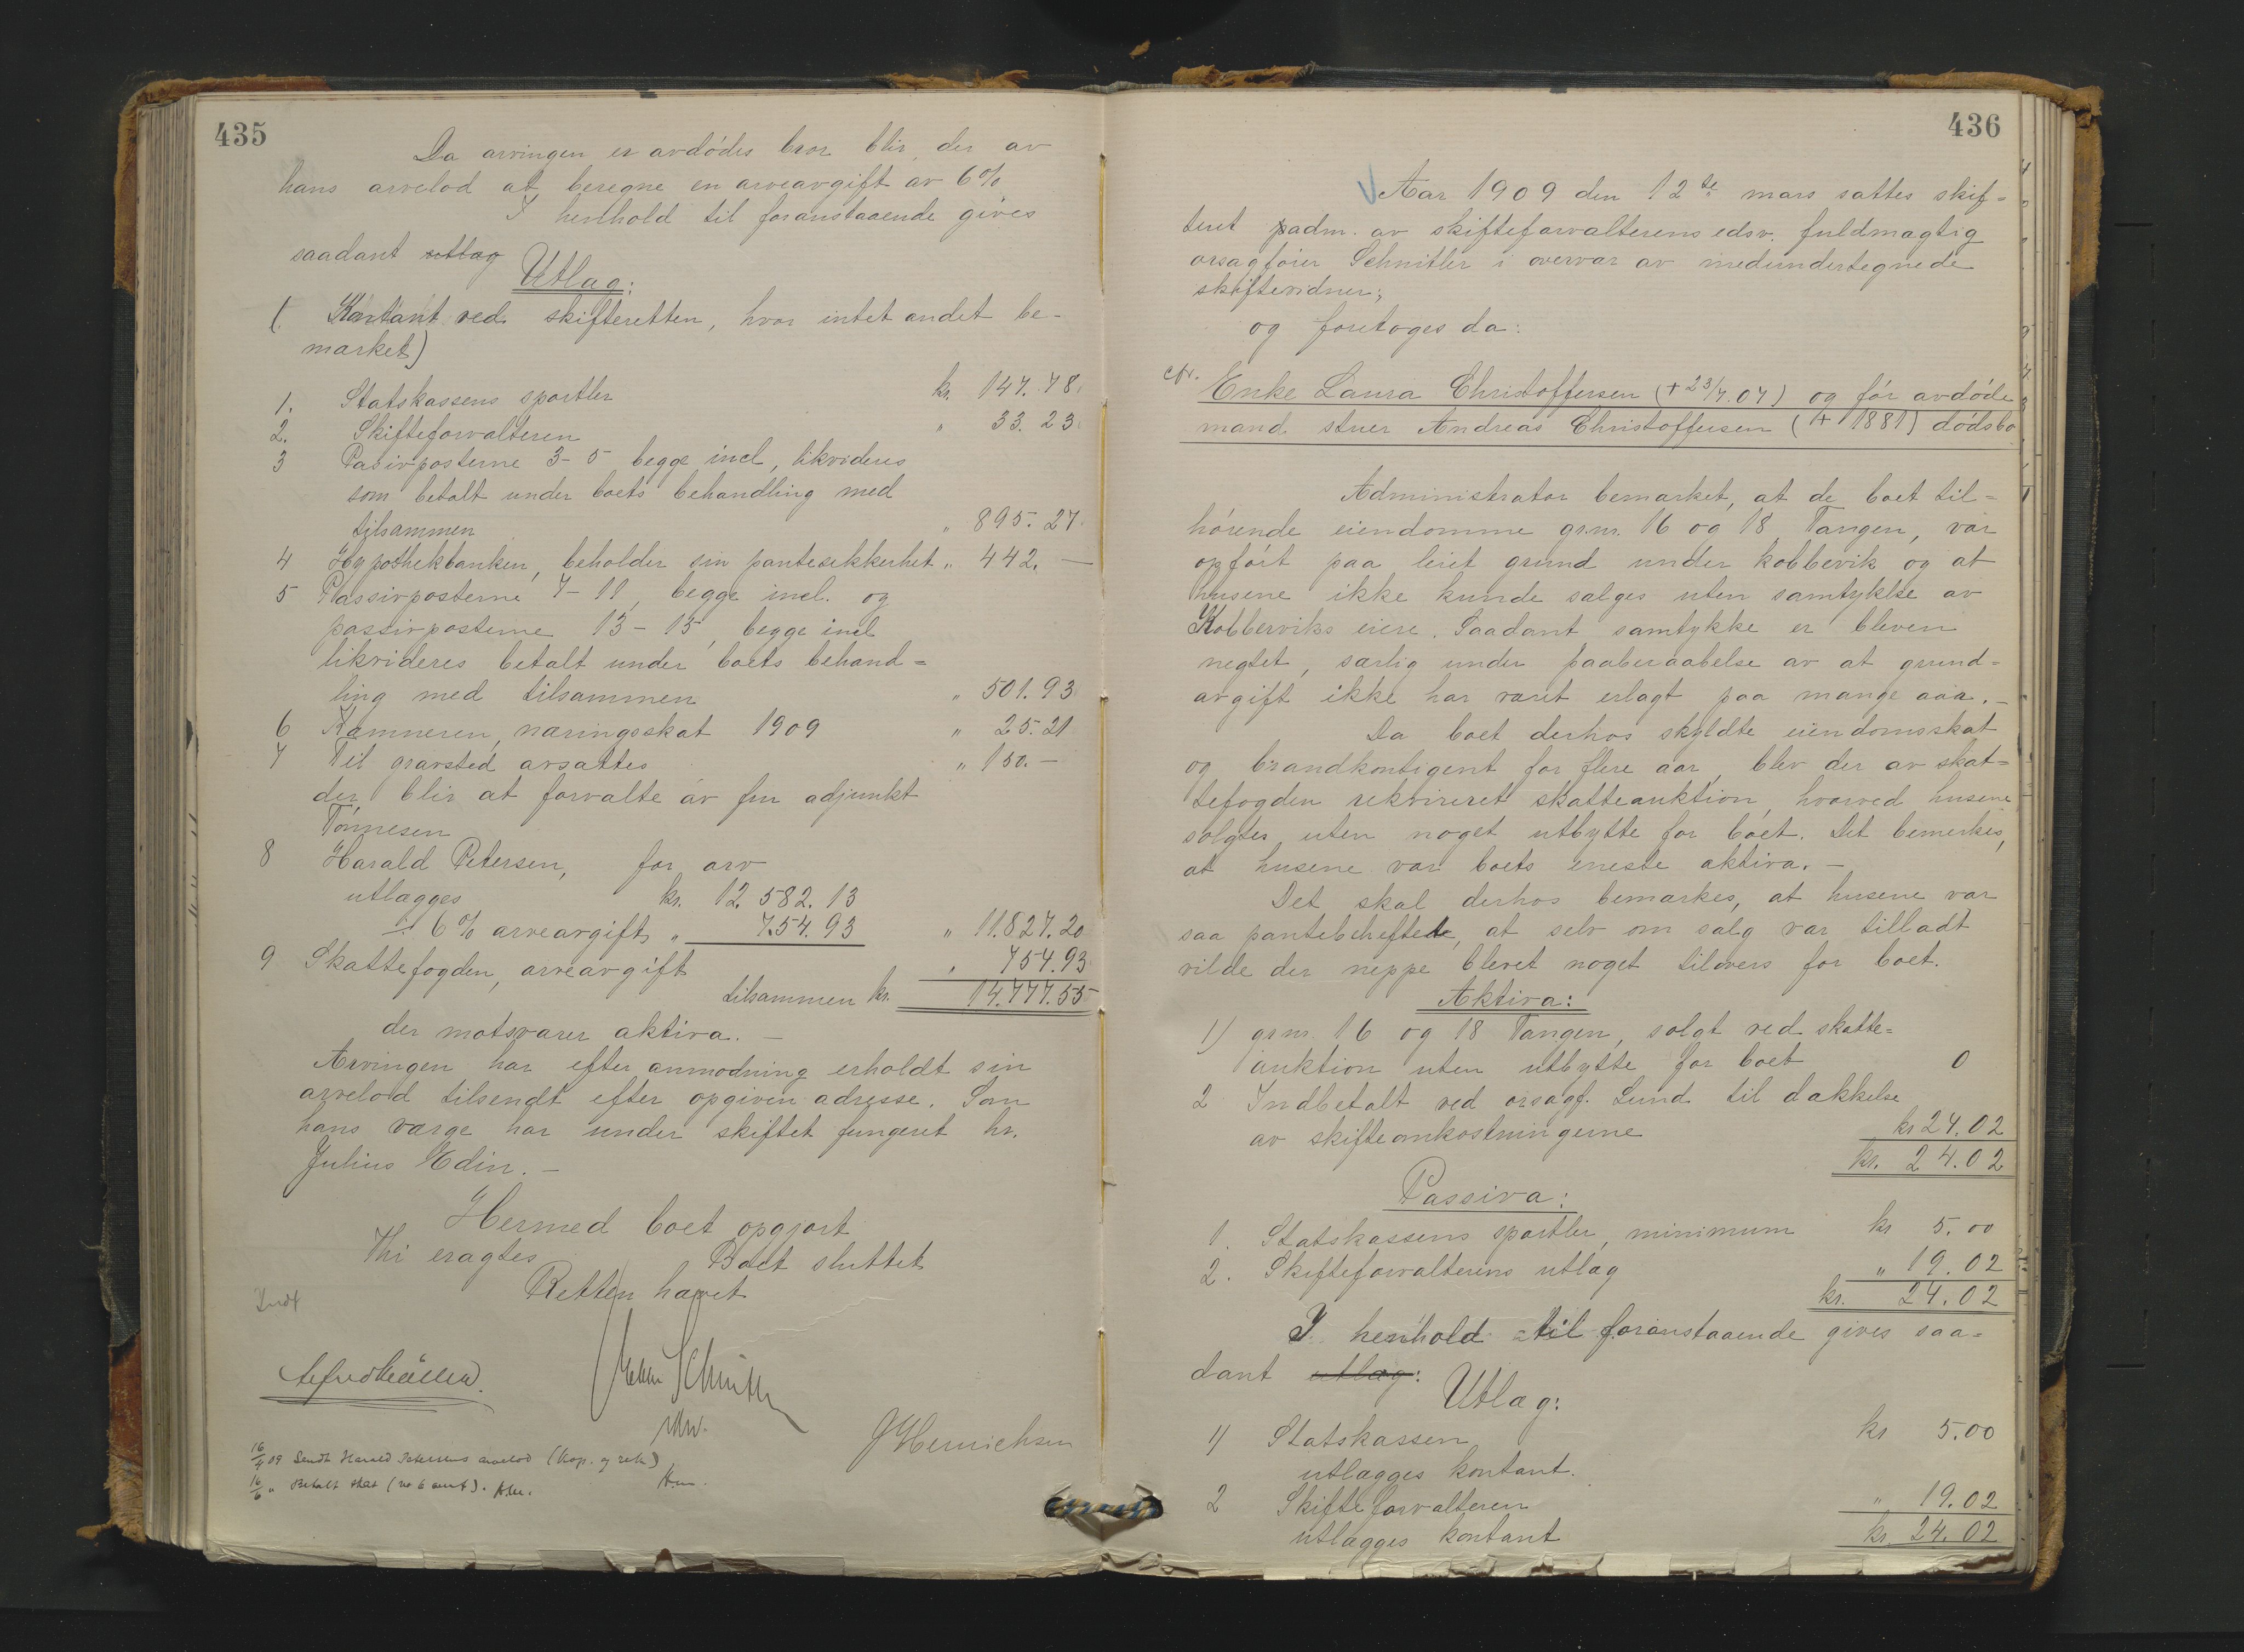 435
Da arvingen er avdødes bror blir der av
hans arvelod at beregne en arveavgift av 6%
I henhold til foranstaaende gives
saadant utlæg
Utlæg:
(Kontant ved skifteretten, hvor intet andet be-
mærket)
1. Statskassens sportler kr. 147.78.
2. Skifteforvalteren " 33.23.
3 Pasivposterne 3-5 begge incl, likvideres
som betalt under boets behandling med
tilsammen " 895.27.
4 Hypothekbanken, beholder sin pantesikkerhet " 442. —
5 Passivposterne 7-11, begge incl. og
passivposterne 13-15, begge incl
likvideres betalt under boets behand=
ling med tilsammen " 501.93
6 Kæmneren, næringsskat 1909 " 25.21
7 Til gravsted avsættes " 150. —
der blir at forvalte av frn adjunkt
Tønnesen
8 Harald Petersen, for arv
utlægges kr. 12.582.13
÷ 6% arveavgift " 754.93 " 11.827.20
9 Skattefogden, arveavgift " 754.93
tilsammen kr. 14.777.55
der motsvarer aktiva. —
Arvingen har efter anmodning erholdt sin
arvelod tilsendt efter opgiven adresse. Som
hans værge har under skiftet fungeret hr.
Julius Edin. —
Hermed boet opgjort
Thi eragtes
Boet sluttet
Retten hævet
Schnitler
JHenrichsen
16/4 09 Sendt Harald Petersens arvelod (kop. og rek)
16/6 " Betalt skat (no 6 ovenf).
436
Aar 1909 den 12te mars sattes skif=
teret padm. av skifteforvalterens edsv. fuldmægtig
orsagfører Schnitler i overvær av medundertegnede
skiftevidner;
og foretoges da:
cfr.
Enke Laura Christoffersen (+ 23/7.07) og før avdøde
mand stuer Andreas Christoffersen (+ 1881) dødsbo
Administrator bemærket, at de boet til=
hørende eiendomme gr.nr. 16 og 18 Tangen, var
opført paa leiet grund under kobbervik og at
husene ikke kunde sælges uten samtykke av
Kobberviks eiere. Saadant samtykke er bleven
negtet, særlig under paaberaabelse av at grund=
avgift ikke har været erlagt paa mange aar. —
Da boet derhos skyldte eiendomsskat
og brandkontigent for flere aar, blev der av skat=
tefogden rekvireret skatteauktion, hvorved husene
solgtes uten noget utbytte for boet. Det bemerkes,
at husene var boets eneste aktiva. —
Det skal derhos bemærkes, at husene var
saa pantebeheftede, at selv om salg var tilladt
vilde der neppe blevet noget tilovers for boet.
Aktiva:
1) grnr. 16 og 18 Tangen, solgt ved skatte=
auktion uten utbytte for boet 0
2 Indbetalt ved orsagf. Lund til dækkelse
av skifteomkostningerne kr 24.02
kr. 24.02
Passiva:
1. Statskassens sportler, minimum kr 5.00
2. Skifteforvalterens utlæg " 19.02
kr. 24.02
I henhold til foranstaaende gives saa=
dant utlæg:
Utlæg:
1) Statskassen kr 5.00
utlægges kontant.
2 Skifteforvalteren " 19.02
utlægges kontant kr. 24.02